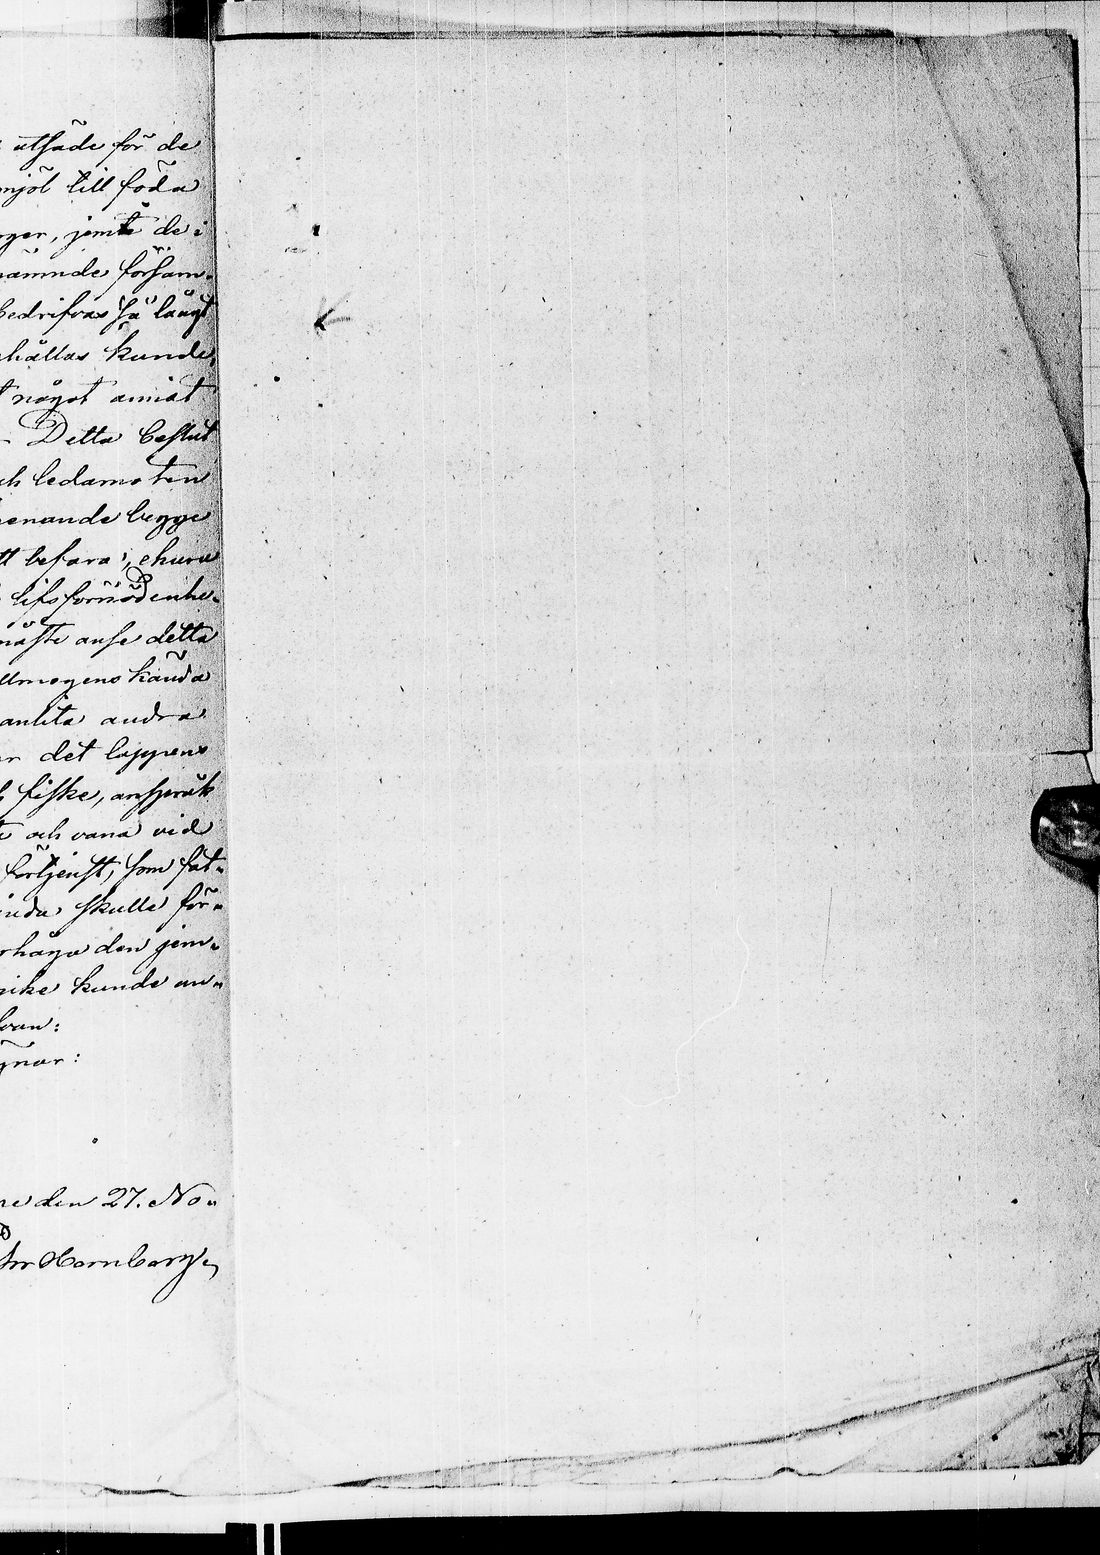 utsäde för de
mjöl till föda
jemte de i
nämnde försam-
bedrifvas så långt
hållas kunde,
något annat
- Detta beslut
ledamoten
begge
befara, ehuru
lifsförnödenhe-
måste anse detta
allmogens kända
anlita andra
det lappens
fiske, anspråk
och vana vid
förtjenst, som fat-
skulle för-
den jem-
kunde an-



den 27. No-
Hornberg,